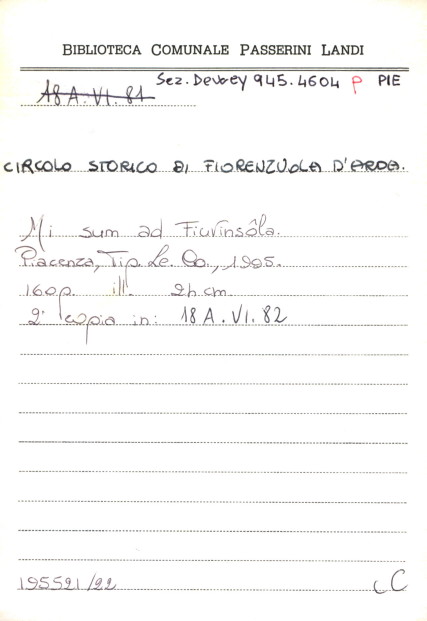 BIBLIOTECA COMUNALE PASSERINI LANDI
Sez. Dewey 945.4604 P PIE
18 A. VI. 81
CIRCOLO STORICO DI FIORENZUOLA D'ARDA.
Mi sum ad Fiurinsôla.
Piacenza, Tip. Le. Co., 1985.
160 p. ill. 24 cm.
2ª copia in: 18 A. VI. 82
195521/22
C